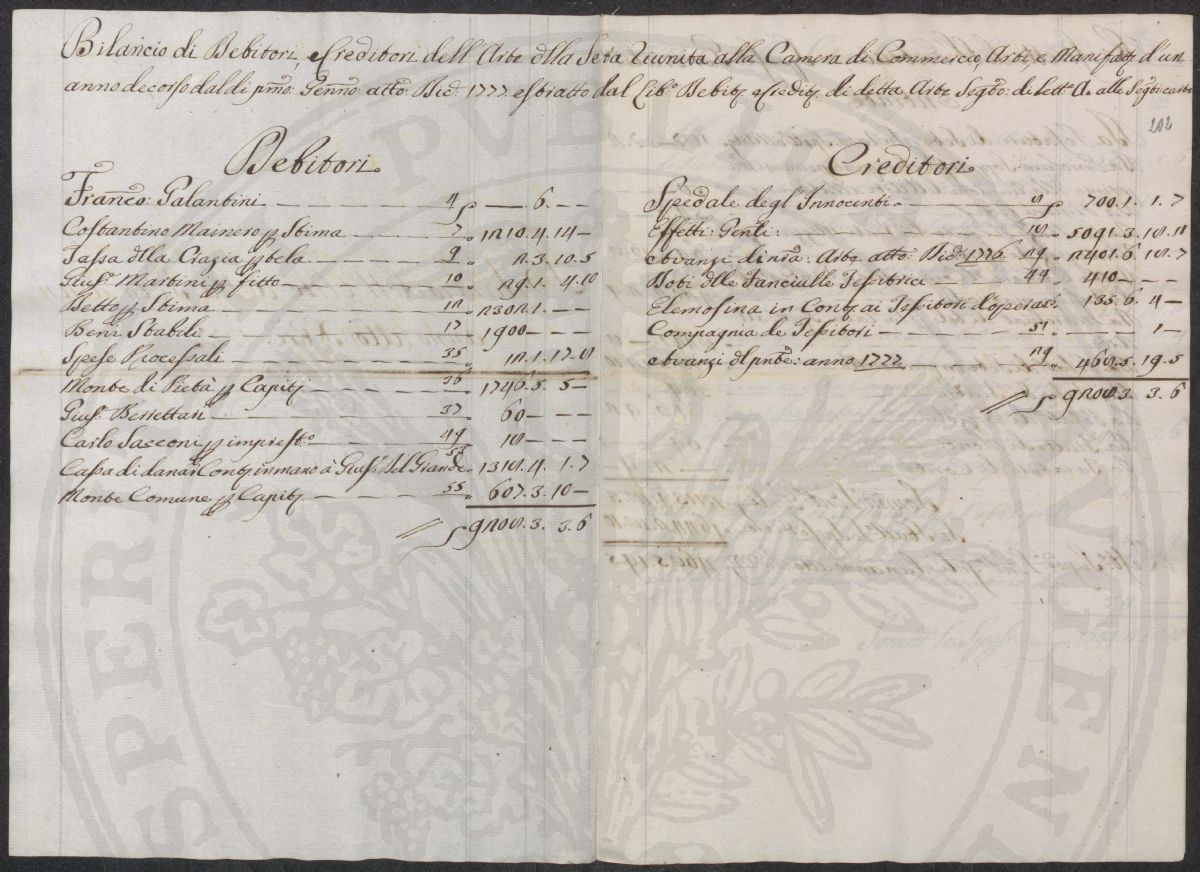 Bilancio di Debitori, e Creditori dell' Arte dlla Seta riunita alla Camera di Commercio, Arti, e Manifatt. d'un
anno decorso dal di pmo. Genno. atto. Dic. 1777. estratto dal Lib. Debit. e Credit. di detta Arte Segto: di Lett.a A. alle Segti: carte
202
Debitori.
Franco: Galantini 4 — 6. — —
Costantino Mainero p Stima 7 1210.4.14 —
Tassa dlla Grazia p tela 9 2.3.10.5
Gius. Martini p fitto 10 29.1.4.10
Detto p Stima 12 2302.1. — —
Beni Stabili 17 1900 — — —
Spese Processali 35 12.1.17.8
Monte di Pietà p Capit. 36 1746.5.5 —
Gius. Berrettari 37 60 — — —
Carlo Sacconi p imprest.o 49 18 — — —
Cassa di danari Cong. in mano à Gius. Del Grande 53 1318.4.1.7
Monte Comune p Capit. 55 607.3.10 —
9208.3.3.6
Creditori.
Spedale degl' Innocenti 8 700.1.1.7
Effetti Genli: 18 5091.3.18.11
Avanzi di nra: Arte atto. Dic. 1776. 29 2401.6.18.7
Doti dlle Fanciulle Tessitrici 44 410 — — —
Elemosina in Cong. ai Tessitori d'opera 135.6.4 —
Compagnia de Tessitori 51 — — 1 —
Avanzi dl pnte: anno 1777. 29 468.5.19.5
9208.3.3.6